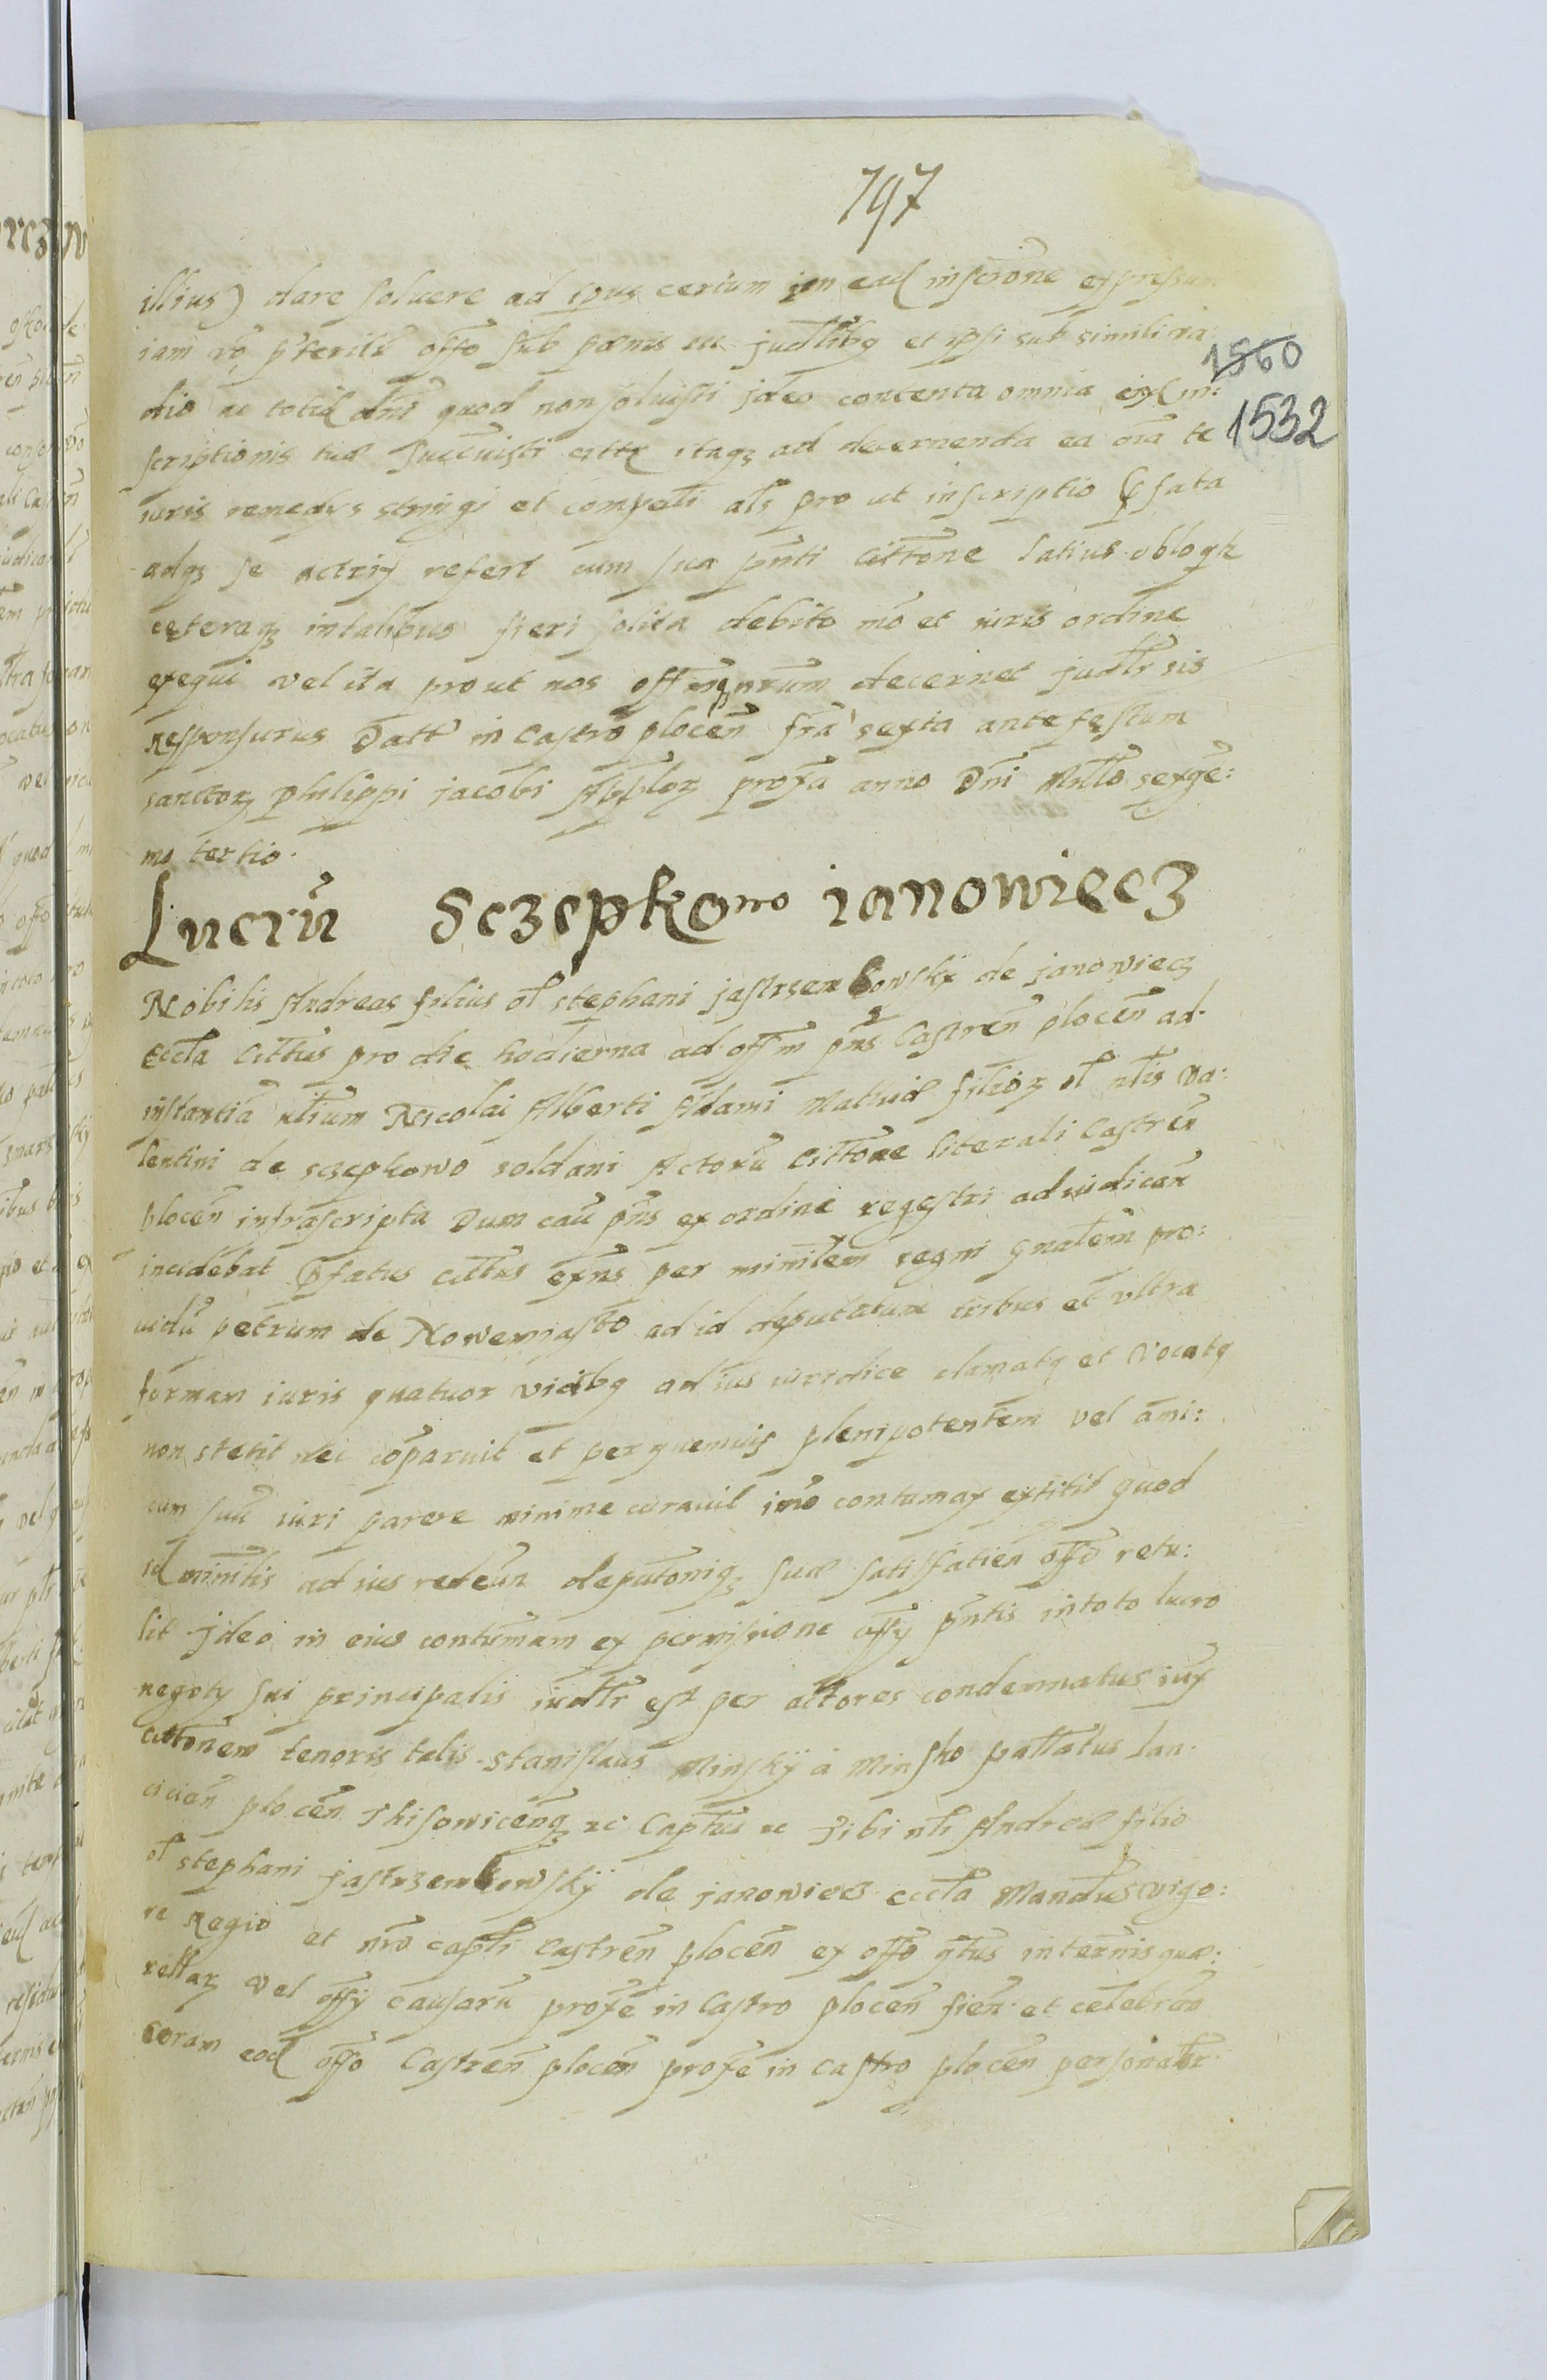 797
illius) dare soluere ad tpus certum in ead inscrione expressum
iam vo pteritu offo sub poenis etc judlibq et ipsi sub simili va
1560
dio ac totid dni quod non soluisti jdeo contenta omnia eiusd in:
1532
scriptionis tuae Succuisti citte itaqz ad decernenda ea oia te
iuris remedys stringi et compelli als pro ut inscriptio Pfata
adqz se actrix refert cum sua pnti Cittone latius
ceteraqz in talibus fieri solita debito mo et iuris ordine
exequi vel ita prout nos decernet judlr sis
Responsurus Datt in Castro plocen fria sexta ante festum
sanctorz Philippi jacobi Applorz proxa anno Dni Millo sexge:
mo tertio.
Lucru Sczepkowo ianowiecz
Nobilis Andreas filius ol stephani jastrzembowsky de janowiecz
eccla Cittus pro die hodierna ad offm pns Castren plocen ad
instantia nlium Nicolai Alberti Adami Mathiae filiorz ol nlis Va:
lentini de sczepkowo soldani Actoru Cittone literali Castren
plocen infrascripta Dum cau pns ex ordine regestri adiudican
incidebat Pfatus cittus exns per minilem regni gnalem pro:
uidu petrum de Nowemiasto ad id deputatum tribus et vltra
formam iuris quatuor vicibq ad ius iuridice clamatq et vocatq
non stetit nec coparuit et per quemuis plenipotentem vel ami:
cum suu iuri parere minime curauit imo contumax extitit quod
id minilis ad ius rediun deputoniqz suae satisfacien offo retu:
lit jdeo in eius contumam ex permissione offy pntis in toto lucro
negoty sui principalis iudlr est per actores condemnatus iux
cittonem tenoris talis stanislaus Minsky a Minsko pallatus lan
cicien plocen etc Captus etc Tibi nli Andreae filio
ol stephani jastrzembowsky de janowiecz eccla Mandus vigo:
re Regio et nro capli Castren plocen ex offo qtus in termis quae:
rellarz vel offy causaru proxe in Castro plocen fien et celebran
coram eod offo Castren plocen proxe in Castro plocen personalr